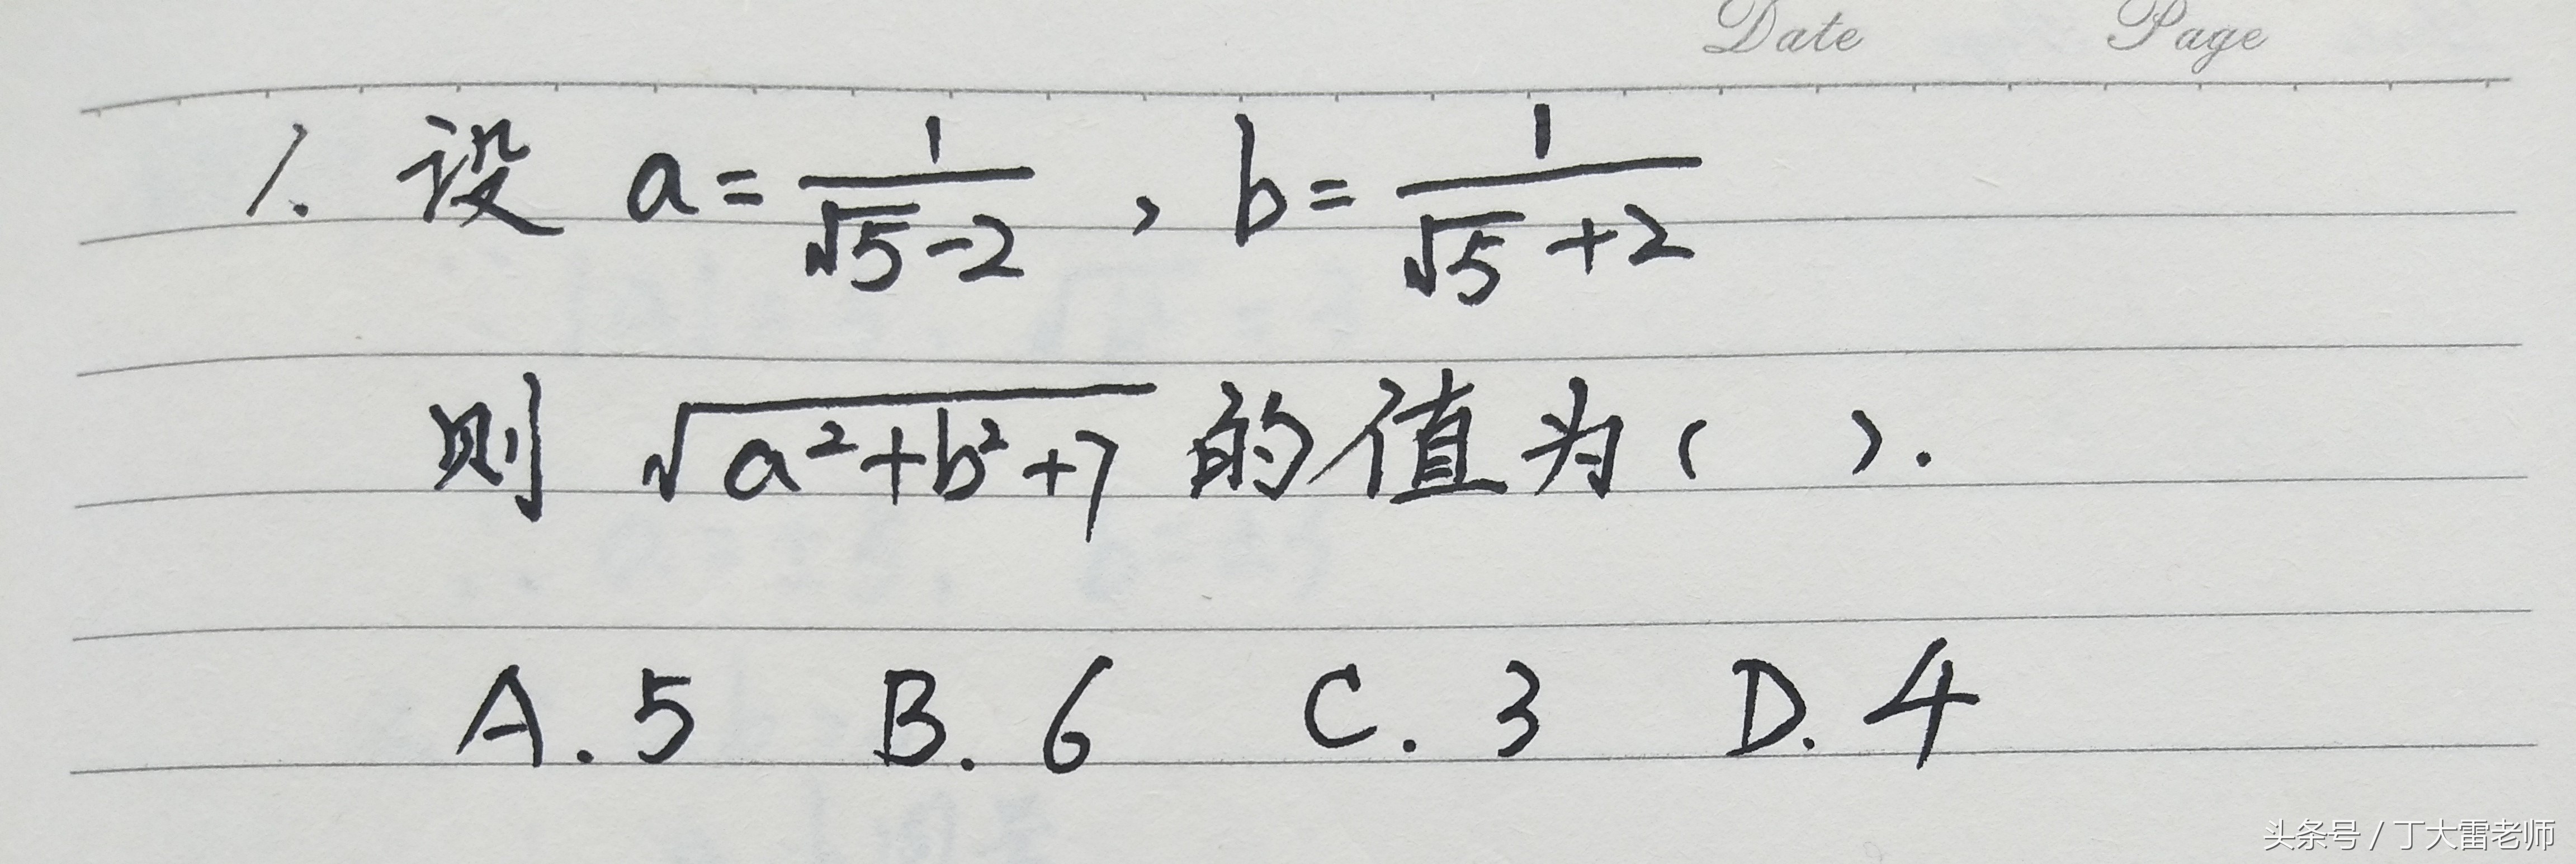 Date Page
1. 设 a=1/(√5-2), b=1/(√5+2)
则 √(a²+b²+7) 的值为( ).
A.5 B.6 C.3 D.4
头条号 / 丁大雷老师